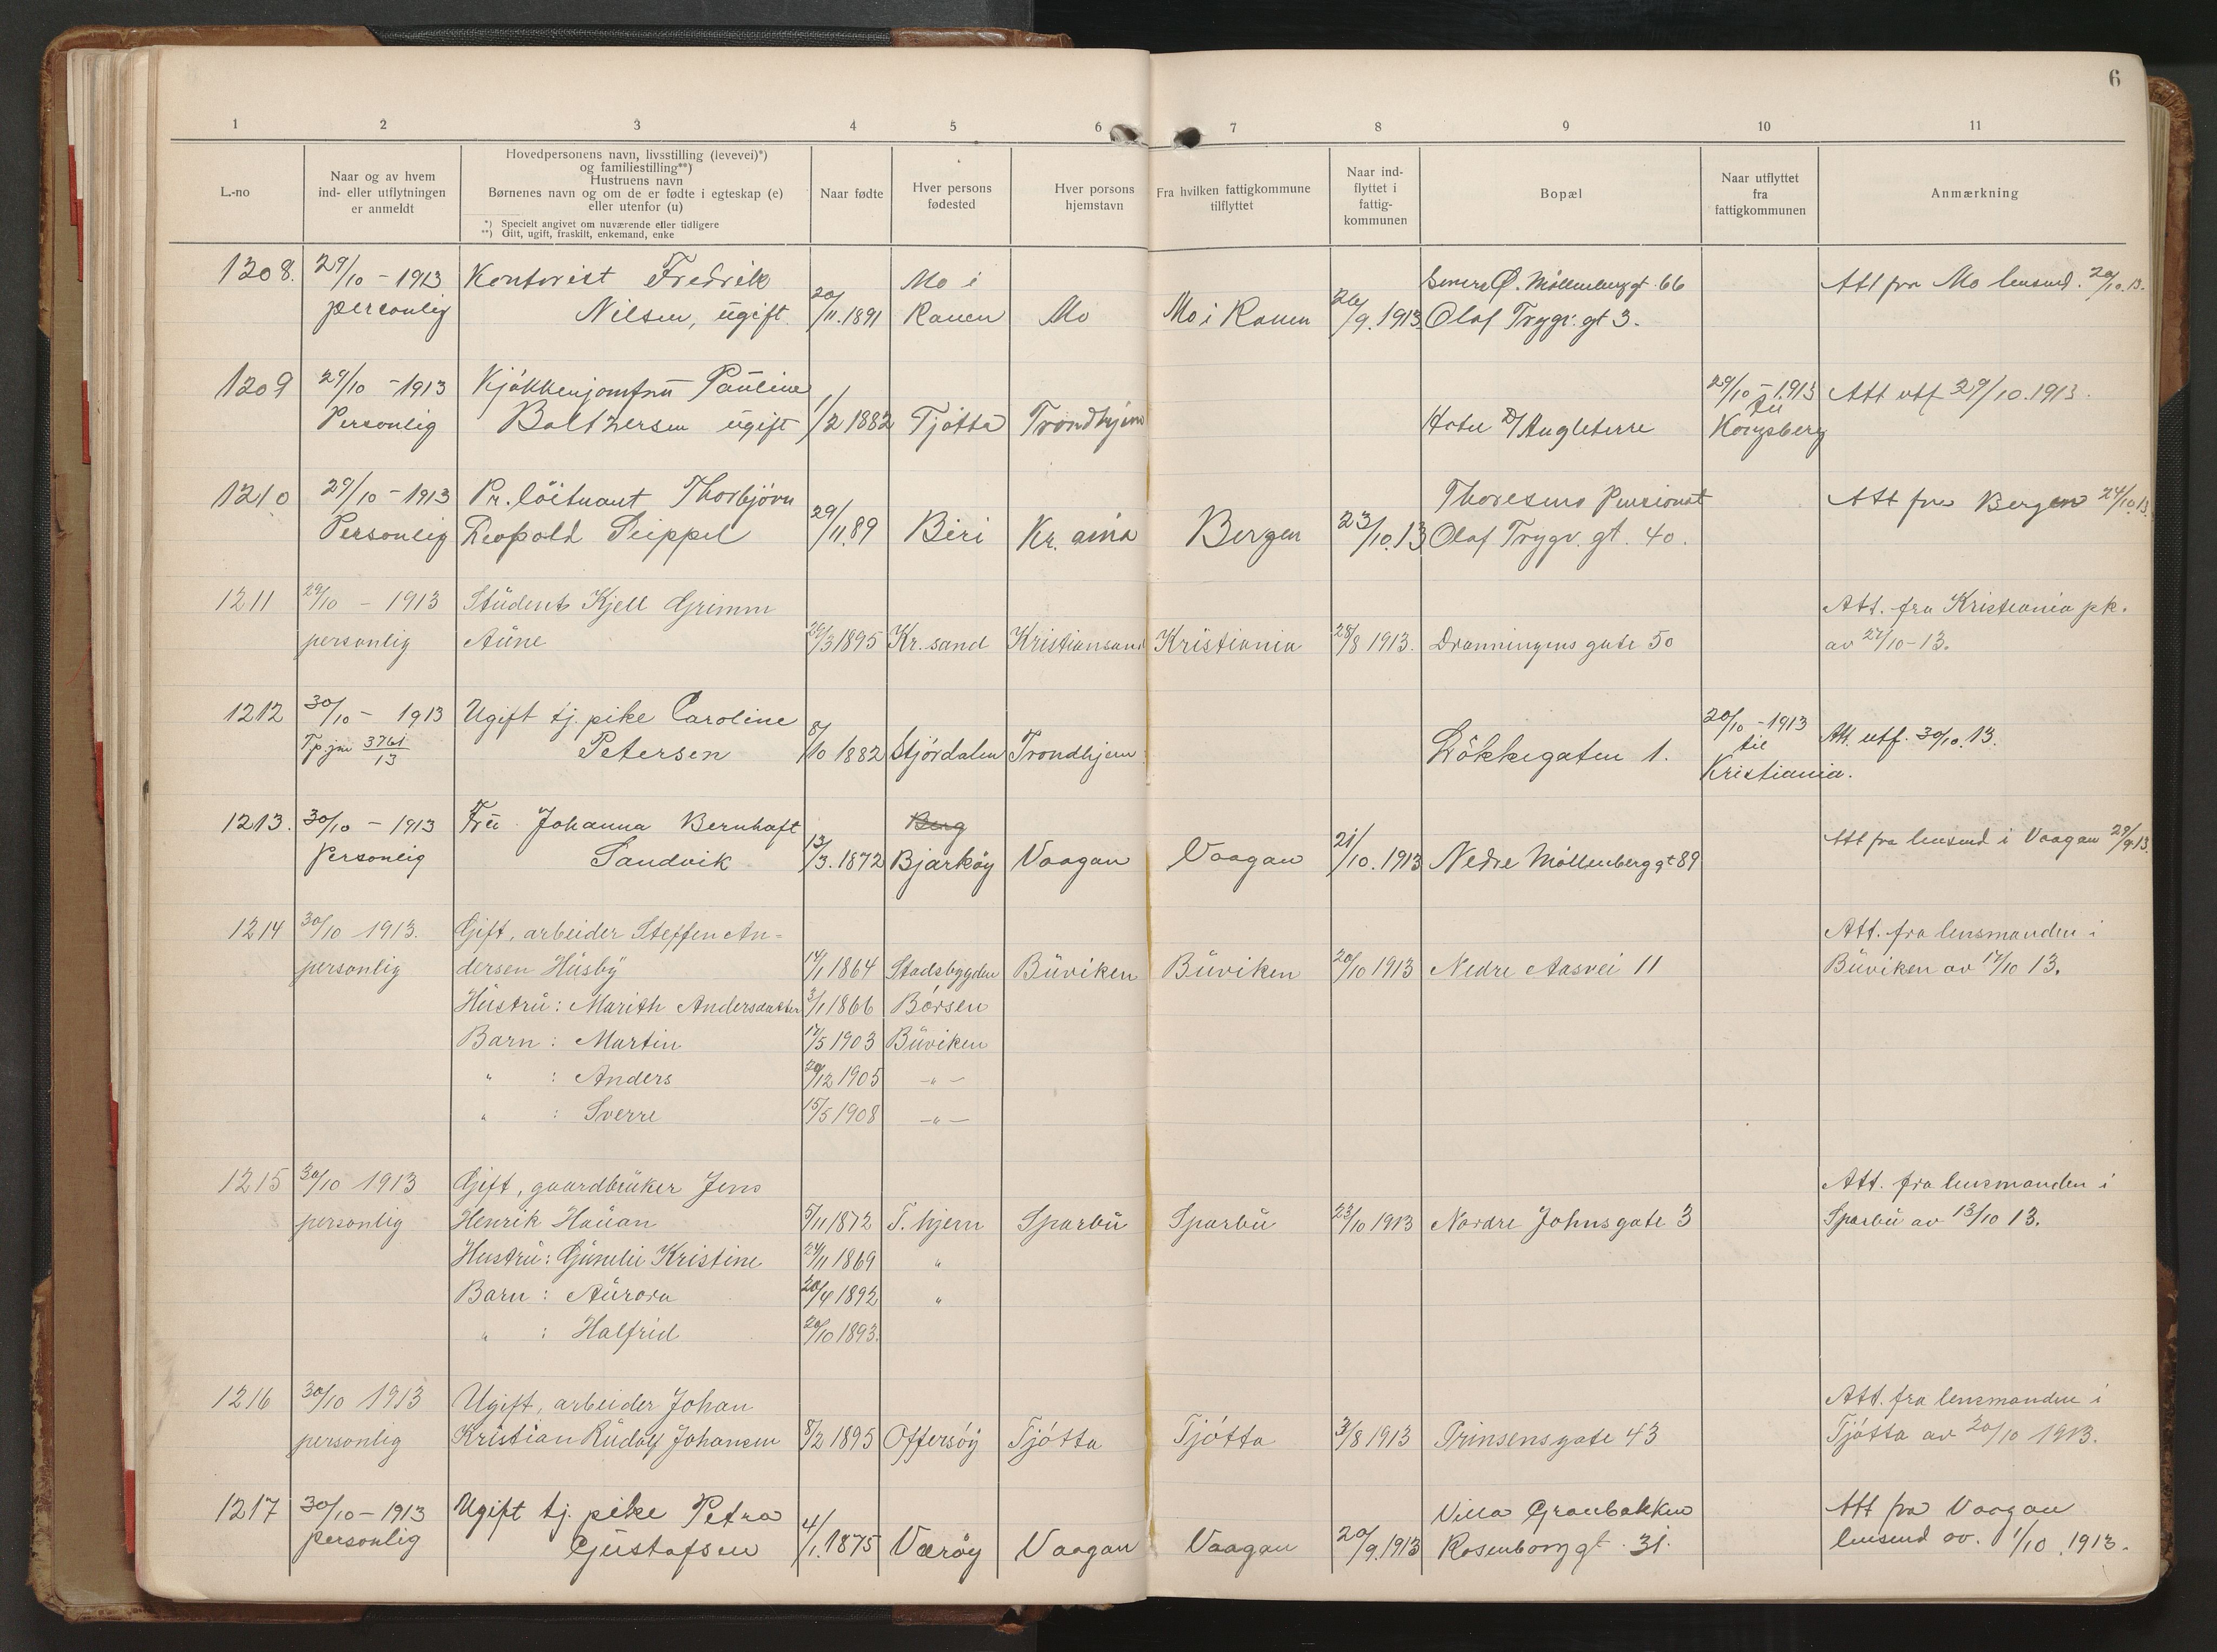 6
1 2 3 4 5 6 7 8 9 10 11
L.-no
Naar og av hvem
ind- eller utflytningen
er anmeldt
Hovedpersonens navn, livsstilling (levevei)*)
og familiestilling**)
Hustruens navn
Børnenes navn og om de er fødte i egteskap (e)
eller utenfor (u)
*) Specielt angivet om nuværende eller tidligere
**) Gift, ugift, fraskilt, enkemand, enke
Naar fødte
Hver persons
fødested
Hver porsons
hjemstavn
Fra hvilken fattigkommune
tilflyttet
Naar ind-
flyttet i
fattig-
kommunen
Bopæl
Naar utflyttet
fra
fattigkommunen
Anmærkning
1208. 29/10 - 1913 Kontorist Fredrik Mo i Senere Ø. Möllenberggt. 66 Att fra Mo lensmd. 20/10.13.
personlig Nilsen, ugift. 20/11.1891 Ranen Mo Mo i Ranen 26/9.1913 Olaf Trygv. gt 3.
1209 29/10 - 1913 Kjökkenjomfru Pauline 29/10 - 1913 Att utf 29/10.1913.
til
Personlig Balthersen ugift 1/2 1882 Tjötta Trondhjem Hotel D/Angleterre Kongsberg
1210 29/10 - 1913 Pr. löitnant Thorbjörn Thoresens Pensionat Att fra Bergen 24/10.13.
Personlig Leopold Seippel 29/11.89 Biri Kr.ania Bergen 23/10.13 Olaf Trygv. gt. 40.
1211 29/10 - 1913 Student Kjell Grimm Att. fra Kristiania pk.
personlig Aune 29/3 1895 Kr.sand Kristiansand Kristiania 28/8 1913. Dronningens gate 50 av 27/10-13.
1212 30/10 - 1913 Ugift tj. pike Caroline 20/10 - 1913
Tp.jnr 3761/13 Petersen 8/10 1882 Stjördalen Trondhjem Lökkegaten 1. til Att. utf. 30/10.13.
Kristiania.
1213. 30/10 - 1913 Fru Johanna Bernhoft Berg Att fra lensmd i Vaagan 29/9.13.
Personlig Sandvik 13/3.1872 Bjarköy Vaagan Vaagan 21/10.1913 Nedre Möllenberggt 89
1214 30/10 1913. Gift, arbeider Steffen An- Att. fra lensmanden i
personlig dersen Husby 14/1 1864 Stadsbygden Buviken Buviken 20/10 1913 Nedre Aasvei 11 Buviken av 17/10 13.
Hustru: Marith Andersdatter 3/1 1866 Börsen
Barn: Martin 17/5 1903 Buviken
" : Anders 20/12 1905 -"-
" : Sverre 15/5 1908 -"-
1215 30/10 1913 Gift, gaardbruker Jens Att. fra lensmanden i
personlig Henrik Hauan 5/11 1872 T.hjem Sparbu Sparbu 23/10 1913 Nordre Johnsgate 3 Sparbu av 13/10 13.
Hustru: Kristine 24/11 1869 "
Barn: Aurora 20/4 1892 "
" : Halfrid 20/10 1893.
1216 30/10 1913 Ugift, arbeider Johan Att. fra lensmanden i
personlig Kristian Rudolf Johansen 8/2 1895 Offersöy Tjötta Tjötta 3/8 1913 Prinsensgate 43 Tjötta av 20/10 1913.
1217 30/10 - 1913 Ugift tj. pike Petra Villa Granbakken Att fra Vaagan
personlig Gustafsen 4/1.1875 Væröy Vaagan Vaagan 20/9.1913 Rosenborggt. 31. lensmd av. 1/10.1913.